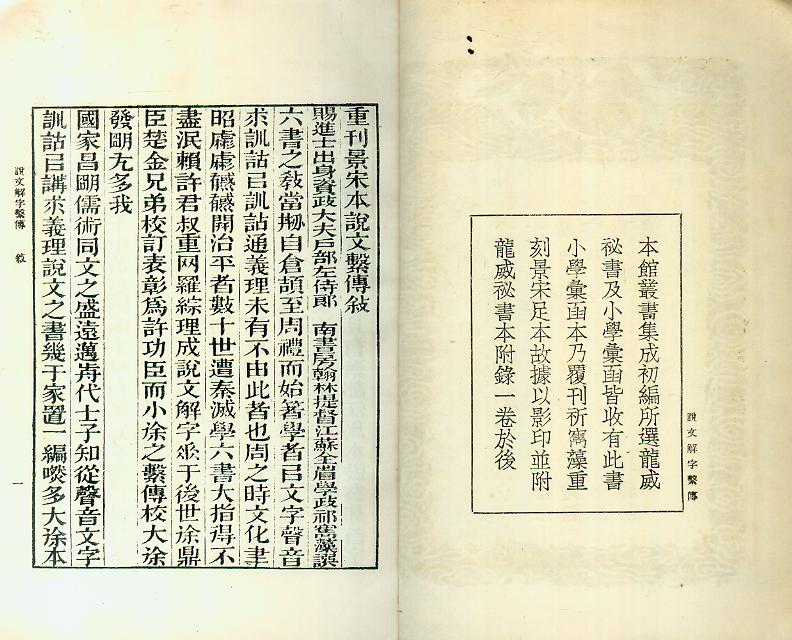 本館叢書集成初編所選龍威
祕書及小學彙函皆收有此書
小學彙函本乃覆刊祁寯藻重
刻景宋足本故據以影印並附
龍威祕書本附錄一卷於後
說文解字繫傳
重刊景宋本說文繫傳敍
賜進士出身資政大夫戶部左侍郎 南書房翰林提督江蘇全省學政祁寯藻譔
六書之敎當自倉頡至周禮而始箸學者㠯文字聲音
求訓詁㠯訓詁通義理未有不由此者也周之時文化聿
昭虖虖開治平者數十世遭秦滅學六書大指得不
盡泯賴許君叔重网羅綜理成說文解字于後世徐鼎
臣楚金兄弟校訂表彰爲許功臣而小徐之繫傳校大徐
發朙尤多我
國家昌朙儒術同文之盛遠邁歬代士子知從聲音文字
訓詁㠯講求義理說文之書幾于家置一編多大徐本
說文解字繫傳 敍 一